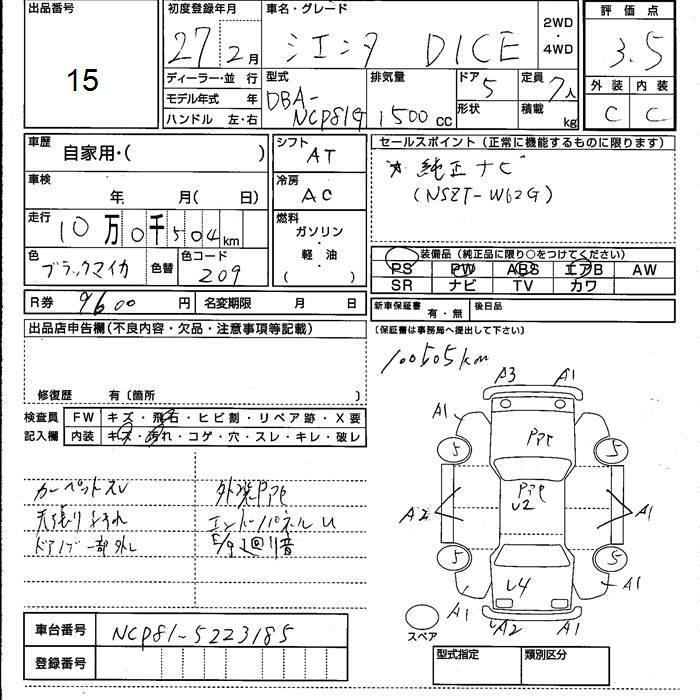 出品番号
15
初度登録年月
27年2月
車名・グレード
シエンタ DICE
2WD
・
4WD
評価点
3.5
ディーラー・並行
モデル年式 年
ハンドル 左・右
型式
DBA-
NCP81G
排気量
1500cc
ドア
5
形状
定員
7人
積載
kg
外装 内装
C C
車歴
自家用・( )
車検
年 月( 日)
走行
10万0千504km
色
ブラックマイカ
色替
色コード
209
シフト
AT
冷房
AC
燃料
ガソリン
・
軽油
( )
セールスポイント(正常に機能するものに限ります)
純正ナビ
(NSZT-W62G)
装備品(純正品に限り○をつけてください)
PS PW ABS エアB AW
SR ナビ TV カワ
R券 9600円
名変期限 月 日
新車保証書 有・無
後日品
(保証書は事務局へ提出して下さい)
出品店申告欄(不良内容・欠品・注意事項等記載)
修復歴 有〔箇所 〕
100505km
検査員
記入欄
FW キズ・飛石・ヒビ割・リペア跡・X要
内装 キズ・汚れ・コゲ・穴・スレ・キレ・破レ
カーペットスレ
天張りよごれ
ドアノブ一部外し
外装PPt
エンドパネルU
E/g 回り音
A3 A1
A1
PPt
5 5
PPt
U2
A2 A1
5 5
U4
A1 A1
A2 A1
スペア
車台番号 NCP81-5223185
登録番号
型式指定 類別区分